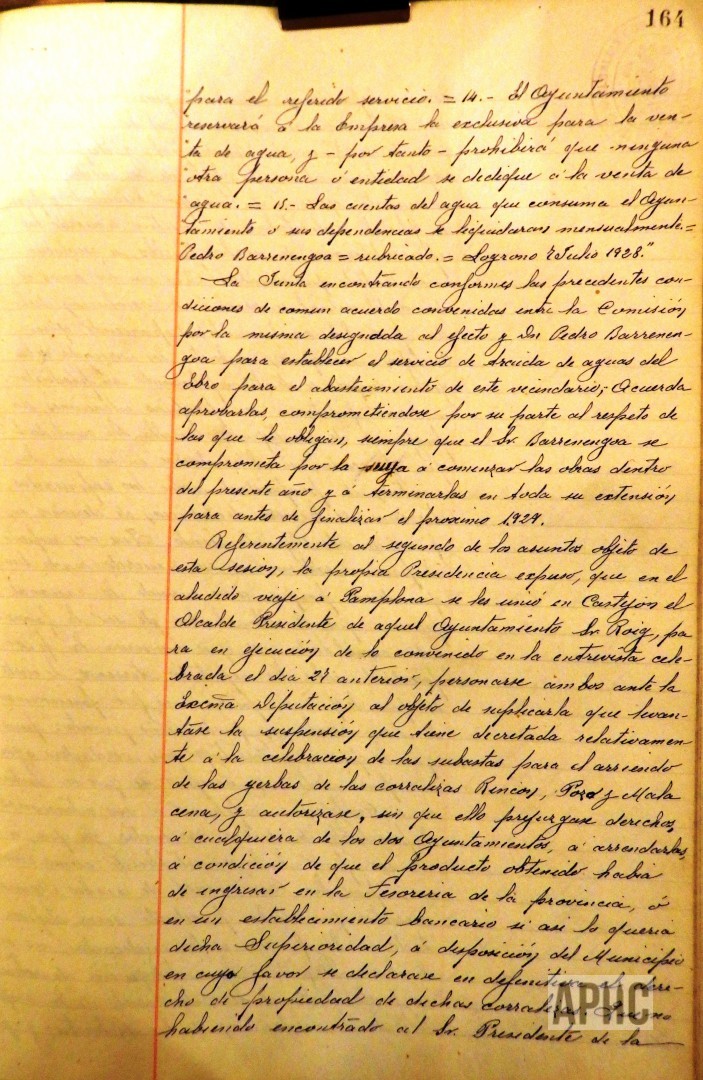 164
para el referido servicio. = 14.- El Ayuntamiento
reservará á la Empresa la exclusiva para la ven-
ta de agua, y - por tanto - prohibirá que ninguna
otra persona ó entidad se dedique á la venta de
agua. = 15.- Las cuentas del agua que consuma el Ayun-
tamiento ó sus dependencias se liquidaran mensualmente.=
Pedro Barrenengoa = rubricado. = Logroño Julio 1928."
La Junta encontrando conformes las precedentes con-
diciones de comun acuerdo convenidas entre la Comisión
por la misma designada al efecto y Dn Pedro Barrenen-
goa para establecer el servicio de traida de aguas del
Ebro para el abastecimiento de este vecindario; Acuerda
aprobarlas, comprometiendose por su parte al respeto de
las que le obligan, siempre que el Sr. Barrenengoa se
comprometa por la suya á comenzar las obras dentro
del presente año y á terminarlas en toda su extensión
para antes de finalizar el proximo 1929.
Referentemente al segundo de los asuntos objeto de
esta sesion, la propia Presidencia expuso, que en el
aludido viaje á Pamplona se les unió en Castejon el
Alcalde Presidente de aquel Ayuntamiento Sr. Roig, pa-
ra en ejecución de lo convenido en la entrevista cele-
brada el dia 27 anterior, personarse ambos ante la
Excma Diputación al objeto de suplicarla que levan-
tase la suspensión que tiene decretada relativamen-
te á la celebracion de las subastas para el arriendo
de las yerbas de las corralizas Rincon, Pozo y Mala
cena, y autorizase, sin que ello prejuzgase derechos,
á cualquiera de los dos Ayuntamientos, á arrendarlas,
á condición de que el producto obtenido habia
de ingresar en la Tesoreria de la provincia, ó
en un establecimiento bancario si asi lo queria
dicha Superioridad, á disposición del Municipio
en cuyo favor se declarase en definitiva el dere-
cho de propiedad de dichas corralizas.
habiendo encontrado al Sr. Presidente de la
APHC